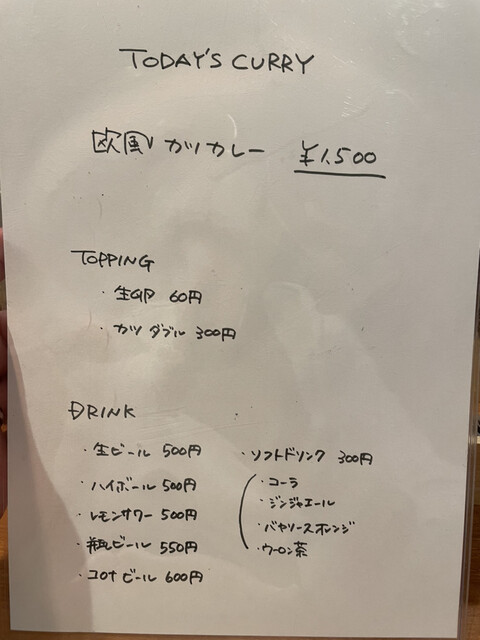 TODAY'S CURRY
欧風カツカレー ¥1,500
TOPPING
・生卵 60円
・カツ ダブル 300円
DRINK
・生ビール 500円
・ハイボール 500円
・レモンサワー 500円
・瓶ビール 550円
・コロナビール 600円
・ソフトドリンク 300円
・コーラ
・ジンジャエール
・バヤリースオレンジ
・ウーロン茶